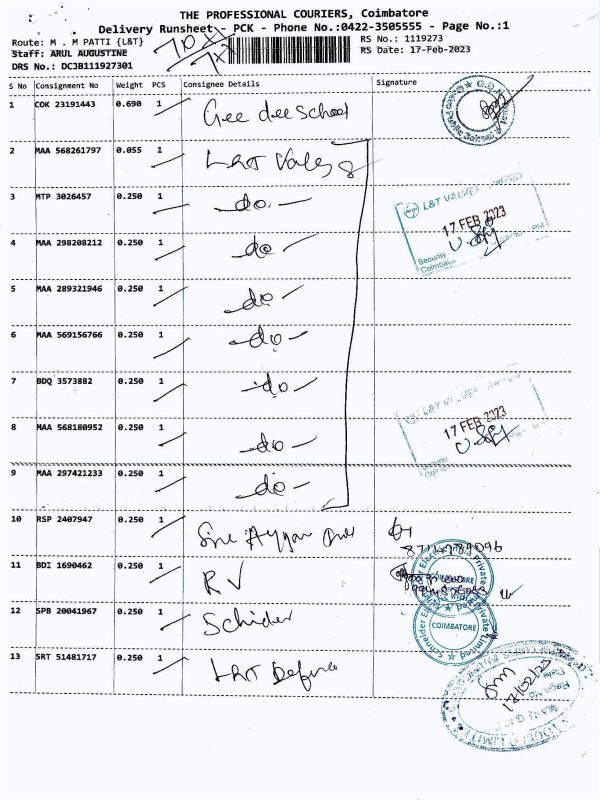 THE PROFESSIONAL COURIERS, Coimbatore
Delivery Runsheet - PCK - Phone No.:0422-3505555 - Page No.:1
Route: M . M PATTI {L&T}
Staff: ARUL AUGUSTINE
DRS No.: DCJB111927301
RS No.: 1119273
RS Date: 17-Feb-2023
S No Consignment No Weight PCS Consignee Details Signature
1 COK 23191443 0.690 1 Gee dee school
2 MAA 568261797 0.055 1 L&T Valves
3 MTP 3026457 0.250 1 -do-
4 MAA 298208212 0.250 1 -do-
5 MAA 289321946 0.250 1 -do-
6 MAA 569156766 0.250 1 -do-
7 BDQ 3573882 0.250 1 -do-
8 MAA 568180952 0.250 1 -do-
9 MAA 297421233 0.250 1 -do-
10 RSP 2407947 0.250 1
11 BDI 1690462 0.250 1 RV
12 SPB 20041967 0.250 1
13 SRT 51481717 0.250 1 L&T
L&T VALVES
17 FEB 2023
Security
17 FEB 2023
8714789096
COIMBATORE